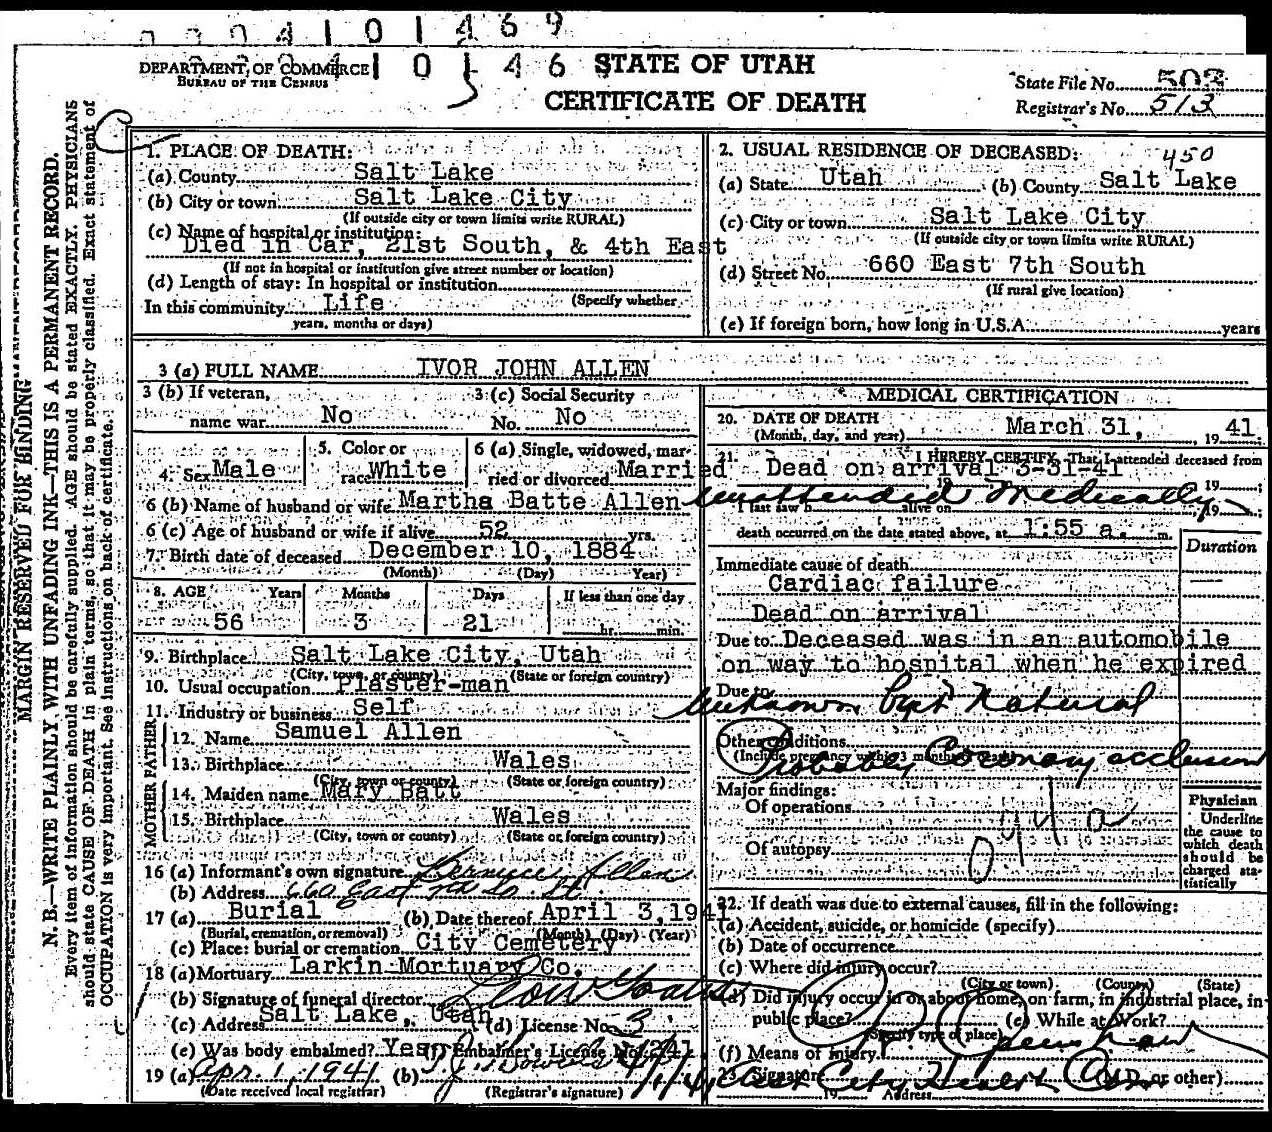 0 0 0 4 1 0 1 4 6 9
DEPARTMENT OF COMMERCE
BUREAU OF THE CENSUS
STATE OF UTAH
CERTIFICATE OF DEATH
State File No. 503
Registrar's No. 513
MARGIN RESERVED FOR BINDING
N. B.—WRITE PLAINLY, WITH UNFADING INK—THIS IS A PERMANENT RECORD.
Every item of information should be carefully supplied. AGE should be stated EXACTLY. PHYSICIANS
should state CAUSE OF DEATH in plain terms, so that it may be properly classified. Exact statement of
OCCUPATION is very important. See instructions on back of certificate.
1. PLACE OF DEATH:
(a) County Salt Lake
(b) City or town Salt Lake City
(If outside city or town limits write RURAL)
(c) Name of hospital or institution:
Died in Car, 21st South, & 4th East
(If not in hospital or institution give street number or location)
(d) Length of stay: In hospital or institution
In this community Life (Specify whether
years, months or days)
2. USUAL RESIDENCE OF DECEASED:
450
(a) State Utah (b) County Salt Lake
(c) City or town Salt Lake City
(If outside city or town limits write RURAL)
(d) Street No. 660 East 7th South
(If rural give location)
(e) If foreign born, how long in U.S.A. years
3 (a) FULL NAME IVOR JOHN ALLEN
3 (b) If veteran,
name war No
3 (c) Social Security
No. No
4. Sex Male
5. Color or
race White
6 (a) Single, widowed, mar-
ried or divorced Married
6 (b) Name of husband or wife Martha Batte Allen
6 (c) Age of husband or wife if alive 52 yrs.
7. Birth date of deceased December 10, 1884
(Month) (Day) Year)
8. AGE Years Months Days If less than one day
56 3 21 hr. min.
9. Birthplace Salt Lake City, Utah
(City, town, or county) (State or foreign country)
10. Usual occupation Plaster-man
11. Industry or business Self
FATHER
12. Name Samuel Allen
13. Birthplace Wales
(City, town or county) (State or foreign country)
MOTHER
14. Maiden name Mary Batt
15. Birthplace Wales
(City, town or county) (State or foreign country)
16 (a) Informant's own signature Allen
(b) Address 660 East 7th So. St
17 (a) Burial (b) Date thereof April 3, 1941
(Burial, cremation, or removal) (Month) (Day) (Year)
(c) Place: burial or cremation City Cemetery
18 (a) Mortuary Larkin Mortuary Co.
(b) Signature of funeral director
(c) Address Salt Lake, Utah (d) License No. 3
(e) Was body embalmed? Yes (f) Embalmer's License No. 241
19 (a) Apr. 1, 1941 (b)
(Date received local registrar) (Registrar's signature)
MEDICAL CERTIFICATION
20. DATE OF DEATH
(Month, day, and year) March 31, 19 41
21. I HEREBY CERTIFY, That I attended deceased from
Dead on arrival 3-31-41
19 19
unattended Medically
I last saw h alive on 19
death occurred on the date stated above, at 1:55 a. m.
Duration
Immediate cause of death
Cardiac failure
Dead on arrival
Due to Deceased was in an automobile
on way to hospital when he expired
Due to
Unknown but Natural
Other conditions
(Include pregnancy within 3 months of death)
Probably Coronary occlusion
Major findings:
Of operations
Of autopsy
094a
Physician
Underline
the cause to
which death
should be
charged sta-
tistically
22. If death was due to external causes, fill in the following:
(a) Accident, suicide, or homicide (specify)
(b) Date of occurrence
(c) Where did injury occur?
(City or town) (County) (State)
(d) Did injury occur in or about home, on farm, in industrial place, in
public place? (e) While at Work?
(Specify type of place)
(f) Means of injury
23. Signature City Health (M.D. or other)
19 Address